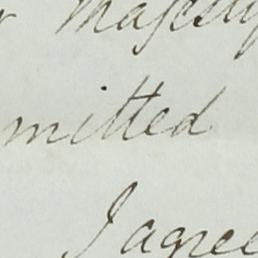 Majesty
mitted
I agree